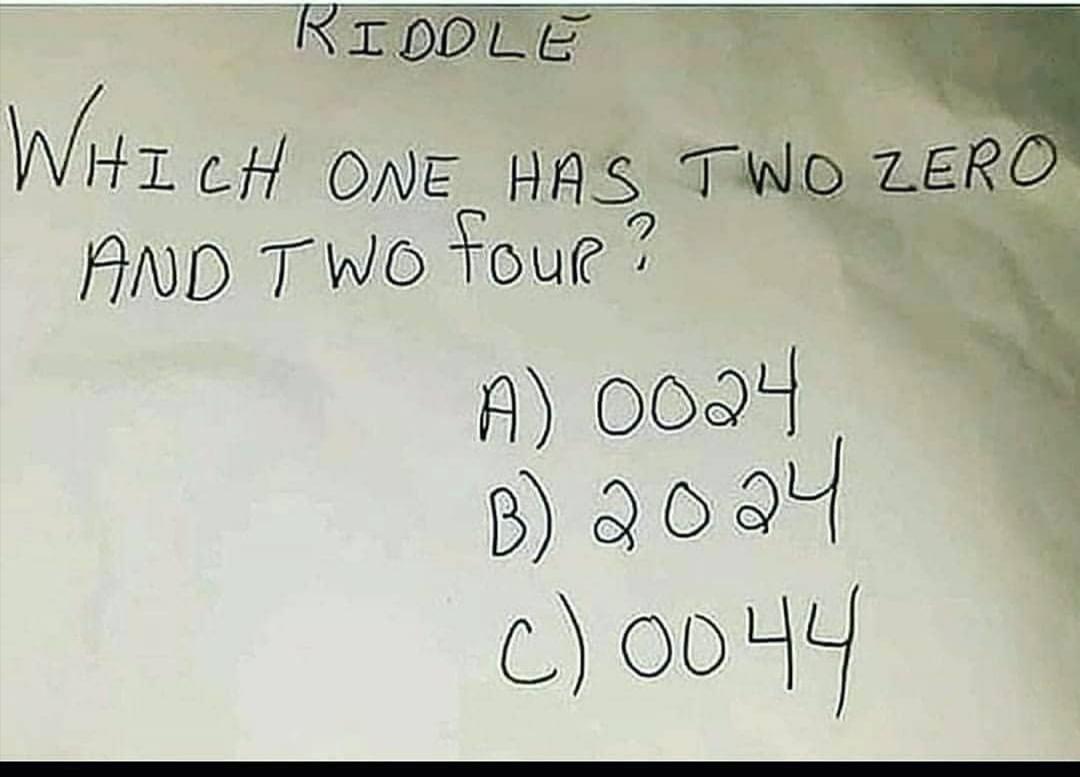 RIDDLE
WHICH ONE HAS TWO ZERO
AND TWO four?
A) 0024
B) 2024
C) 0044